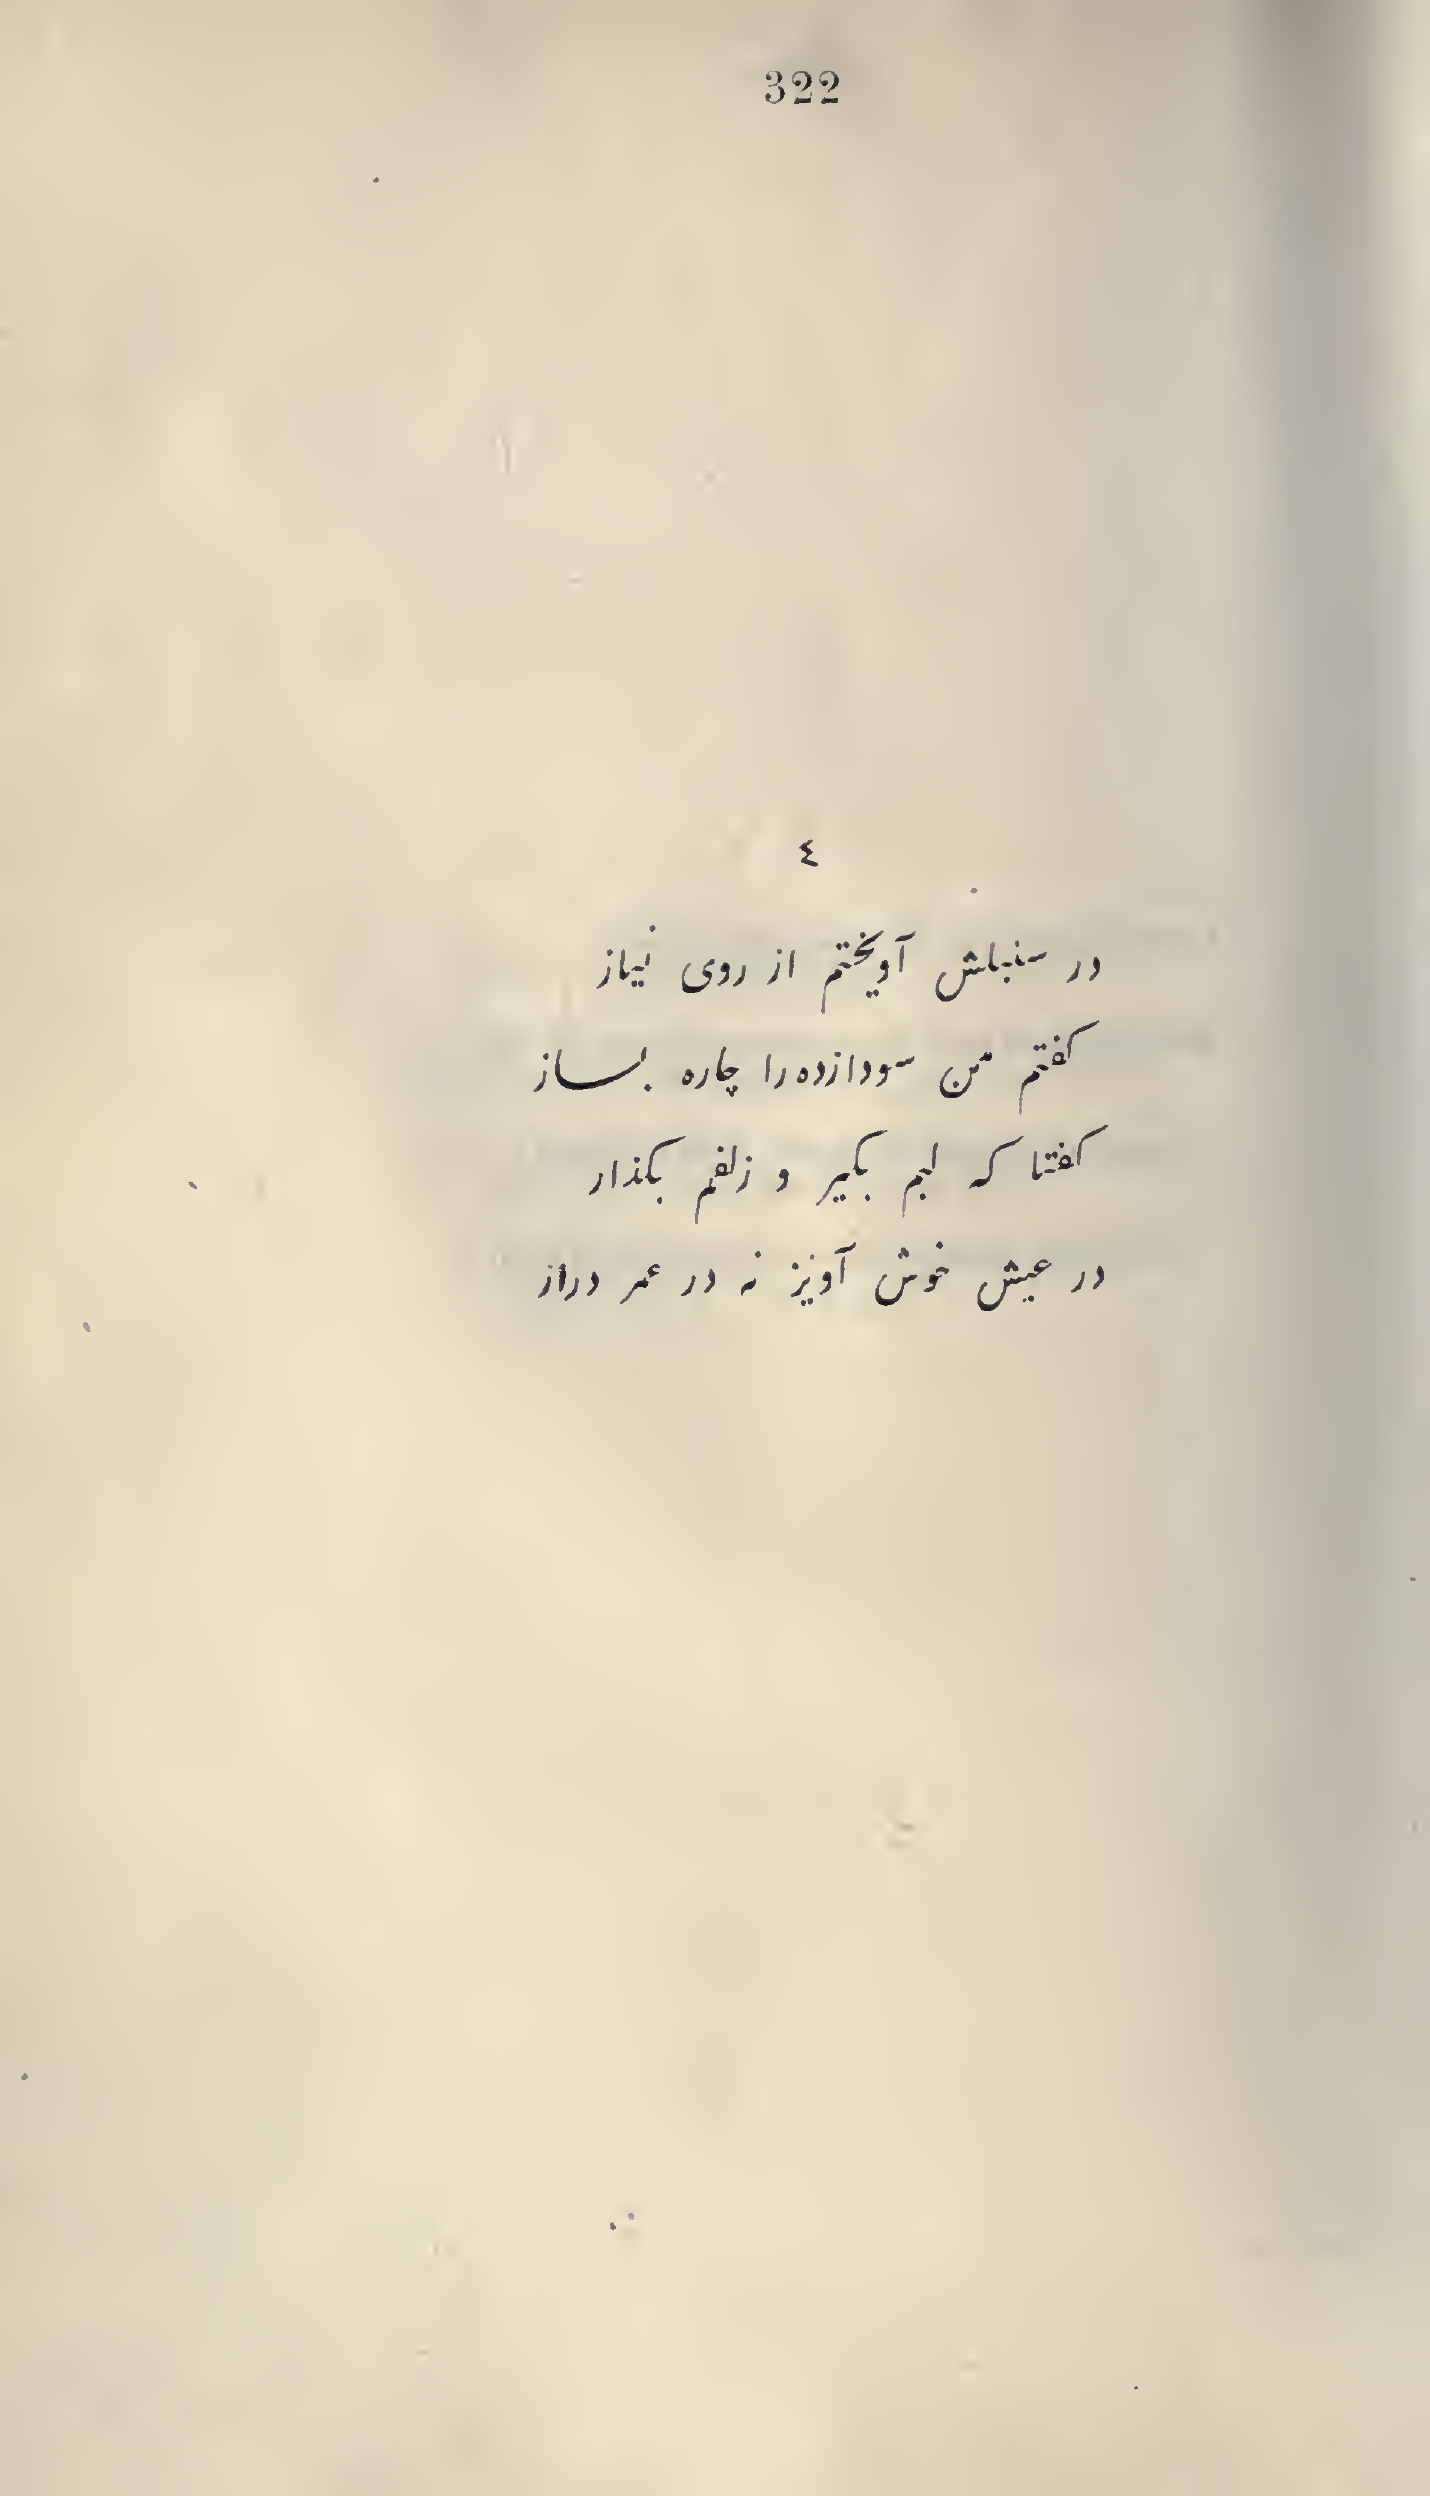 322
٤
در سنبلش آویختم از روی نیاز
کفتم من سودازده را چاره بساز
کفتا که لبم بکیر و زلفم بکذار
در عیش خوش آویز نه در عمر دراز